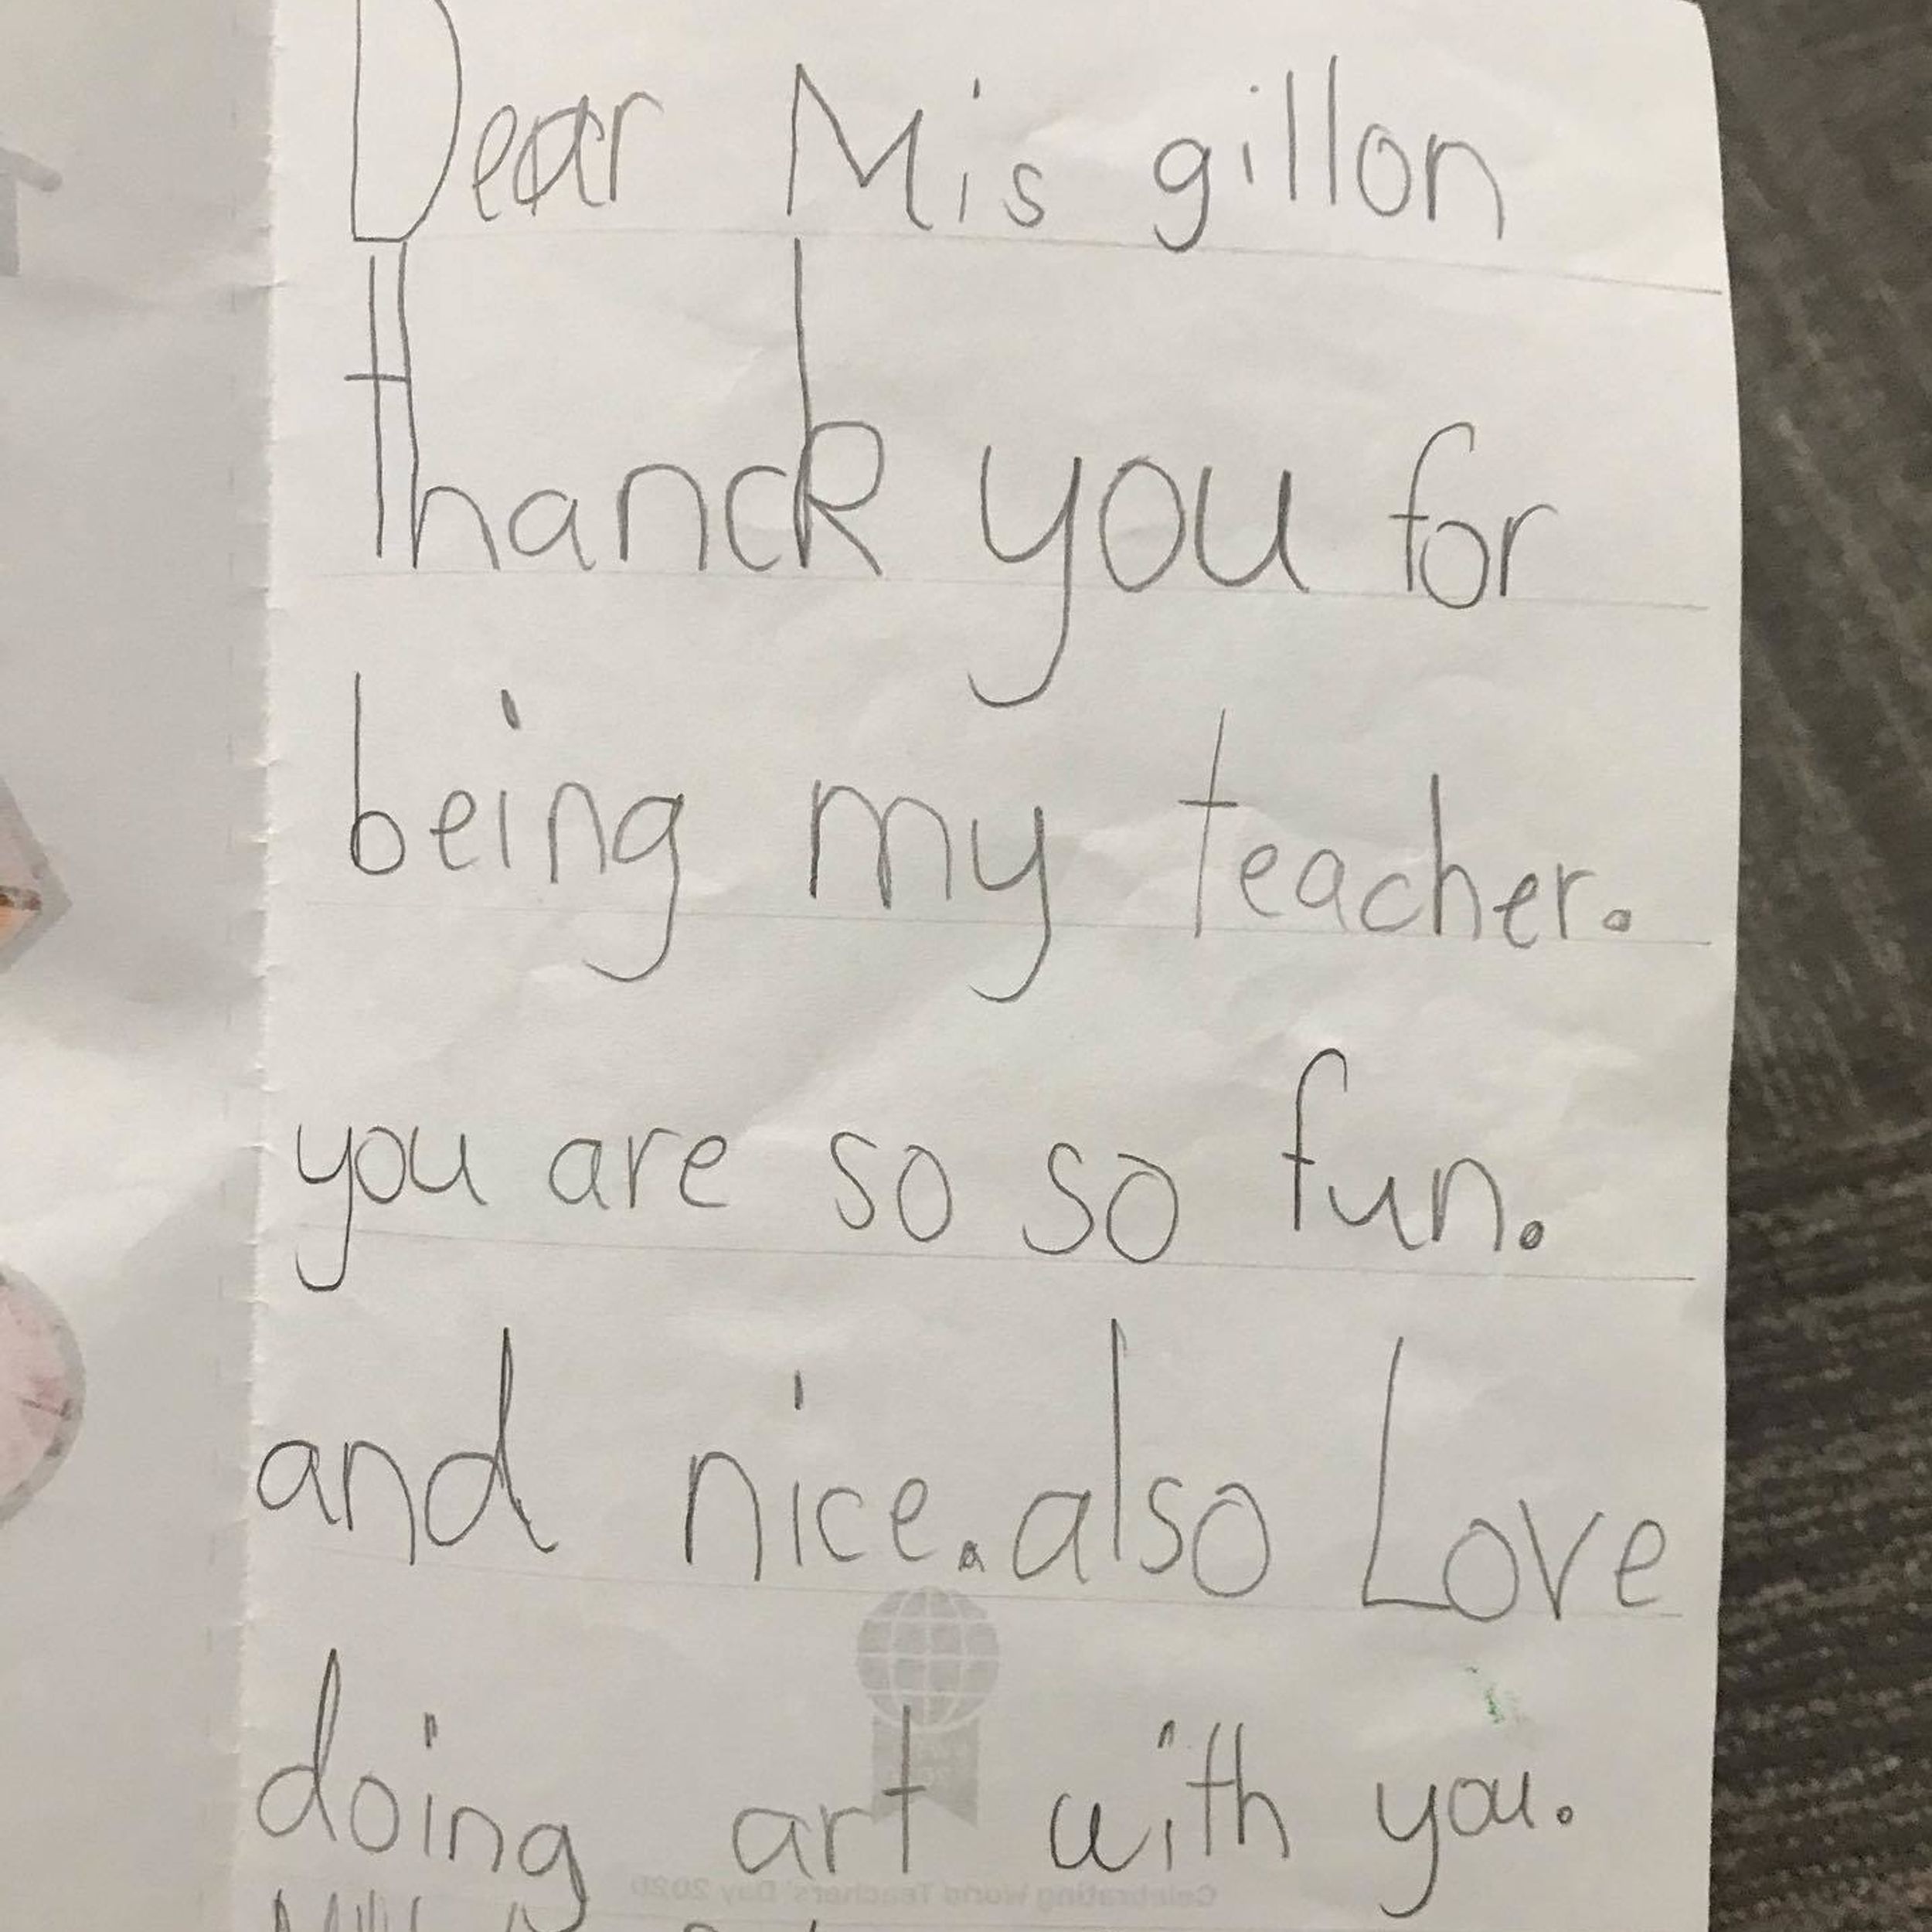 Dear Mis gillon
thanck you for
being my teacher.
you are so so fun.
and nice. also Love
doing art with you.
Celebrating World Teachers' Day 2020